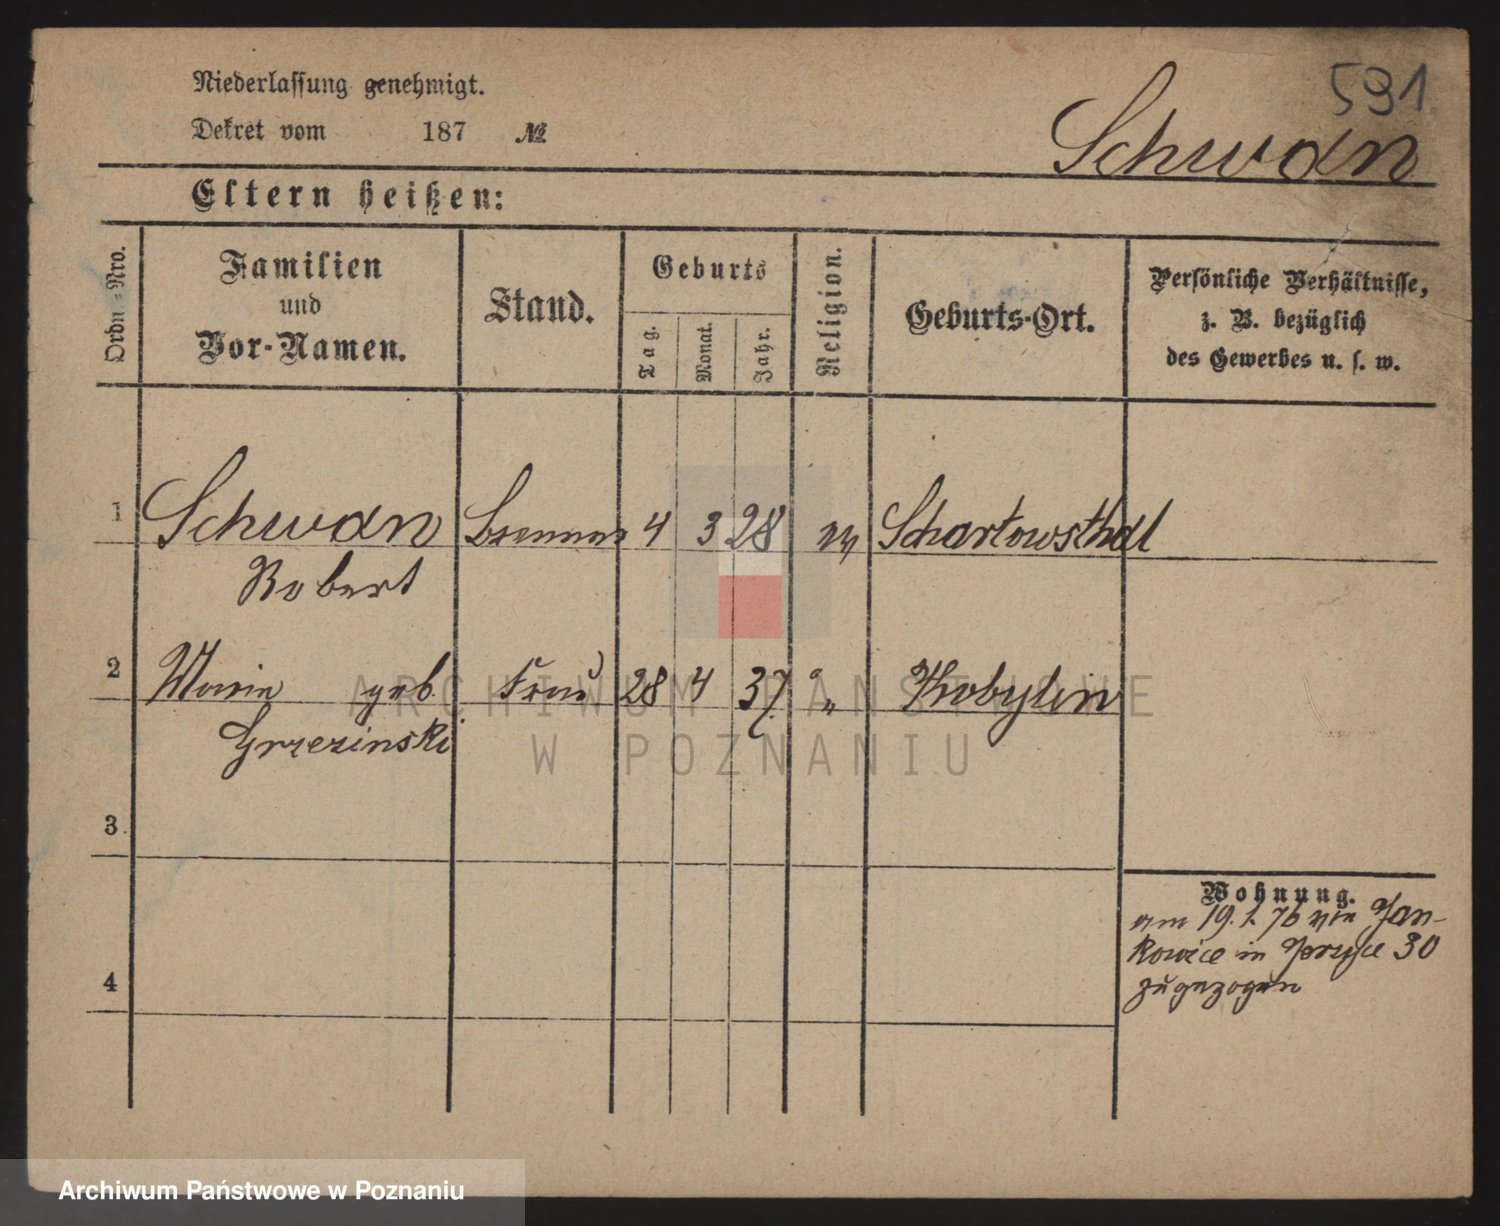 591
Niederlassung genehmigt.
Dekret vom 187 №
Schwan
Eltern heißen:
Ordn.-Nro.
Familien
und
Vor-Namen.
Stand.
Geburts
Tag.
Monat.
Jahr.
Religion.
Geburts-Ort.
Persönliche Verhältnisse,
z. B. bezüglich
des Gewerbes u. s. w.
1 Schwan Brenner 4 3 28 ev Schartowsthal
Robert
2 Maria geb Frau 28 4 37 " Kobylin
Grzezinski
3
4
Wohnung.
am 19. 1. 76 von Jan-
kowice in Jerzyce 30
zugezogen
ARCHIWUM PAŃSTWOWE
W POZNANIU
Archiwum Państwowe w Poznaniu